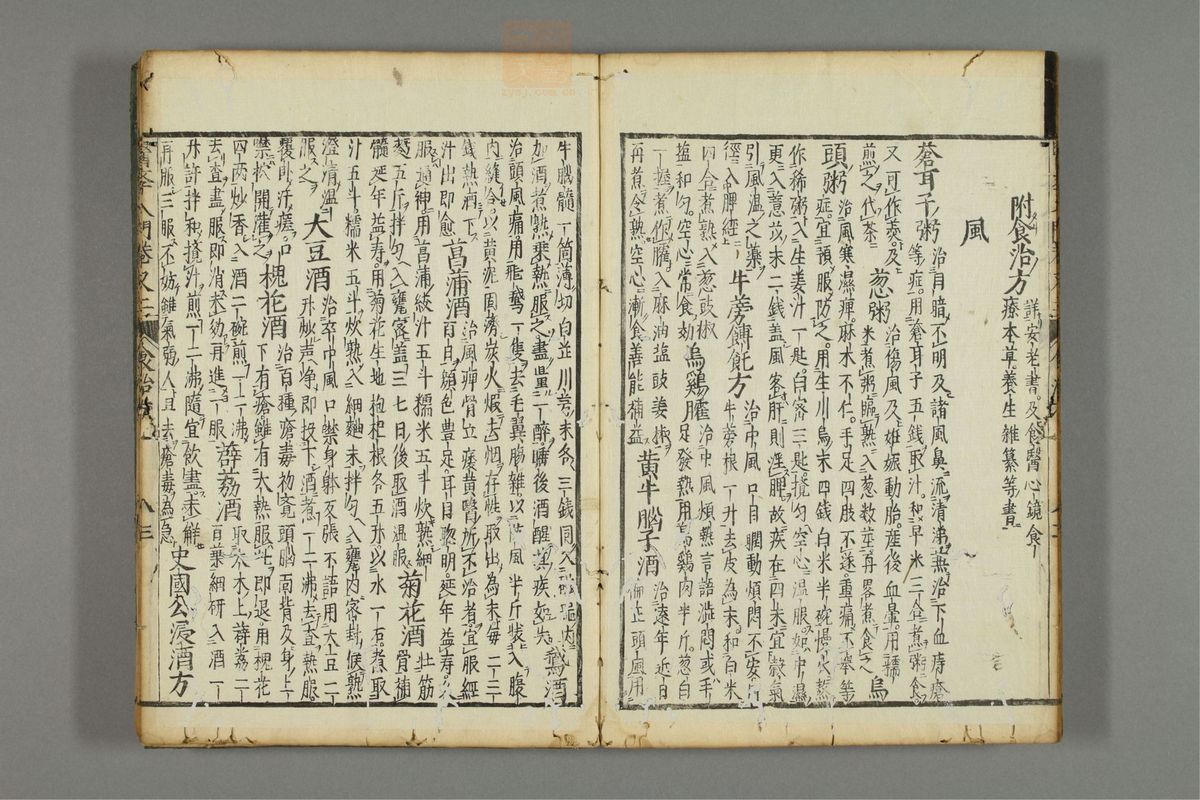 附食治方 詳安老書及食醫心鏡食
療本草養生雜纂等書
風
蒼耳子粥 治目暗不明及諸風鼻流清涕兼治下血痔瘡
等症用蒼耳子五錢取汁和早米三合煮粥食
又可作羹及
煎湯代茶
葱粥 治傷風及姙娠動胎産後血暈用糯
米煮粥臨熟入葱數莖再畧煮食之
烏
頭粥 治風寒濕痺麻木不仁手足四肢不遂重痛不舉等
症宜預服防之用生川烏末四錢白米半碗慢火熬
作稀粥入生姜汁一匙白蜜三匙攪勻空心溫服如中濕
更入薏苡末二錢蓋風客肝則淫脾故疾在四末宜穀氣
引風溫之藥
徑入脾經
牛蒡餺飥方 治中風口目瞤動煩悶不安
牛蒡根一升去皮為末和白米
四合煮熟入葱豉椒
塩和勻空心常食効
烏鷄臛 治中風煩熱言語澁悶或手
足發熱用烏鷄肉半斤葱白
一握煮作臛入麻油塩豉姜椒
再煮令熟空心漸食善能補益
黄牛腦子酒 治遠年近日
偏正頭風用
牛腦髓一箇薄切白芷川芎末各三錢同入磁器内
加酒煮熟乘熱服之盡量一醉睡後酒醒其疾如失
鵝酒
治頭風痛用飛鵝一隻去毛翼腸雜以防風半斤裝入腹
内縫合以黄泥固濟炭火煅去烟存性取出為末每二三
錢熱酒下
汁出即愈
菖蒲酒 治風痺骨立痿黄醫所不治者宜服經
百日顔色豊足耳目聰明延年益壽久
服通神用菖蒲絞汁五斗糯米五斗炊熟細
麯五斤拌勻入甕密蓋三七日後取酒溫服
菊花酒 壯筋
骨補
髓延年益壽用菊花生地枸杞根各五升以水一石煮取
汁五斗糯米五斗炊熟入細麯末拌勻入甕内密封候熟
澄清溫
服之
大豆酒 治卒中風口禁身躬反張不語用大豆二
升炒声絶即投下酒煮一二沸去査熱服
覆卧汗瘥口
禁拗開灌之
槐花酒 治百種瘡毒初竟頭腦面背及身上
下有瘡雖有大熱服此即退用槐花
四両炒香入酒二碗煎一二沸
去査盡服即消未幼再進一服
薜荔酒 取木上薜荔二
百葉細研入酒一
升許拌和攪汁煎一二沸隨宜飲盡未觧
再服三服不妨雖氣弱人且去瘡毒為急
史國公浸酒方